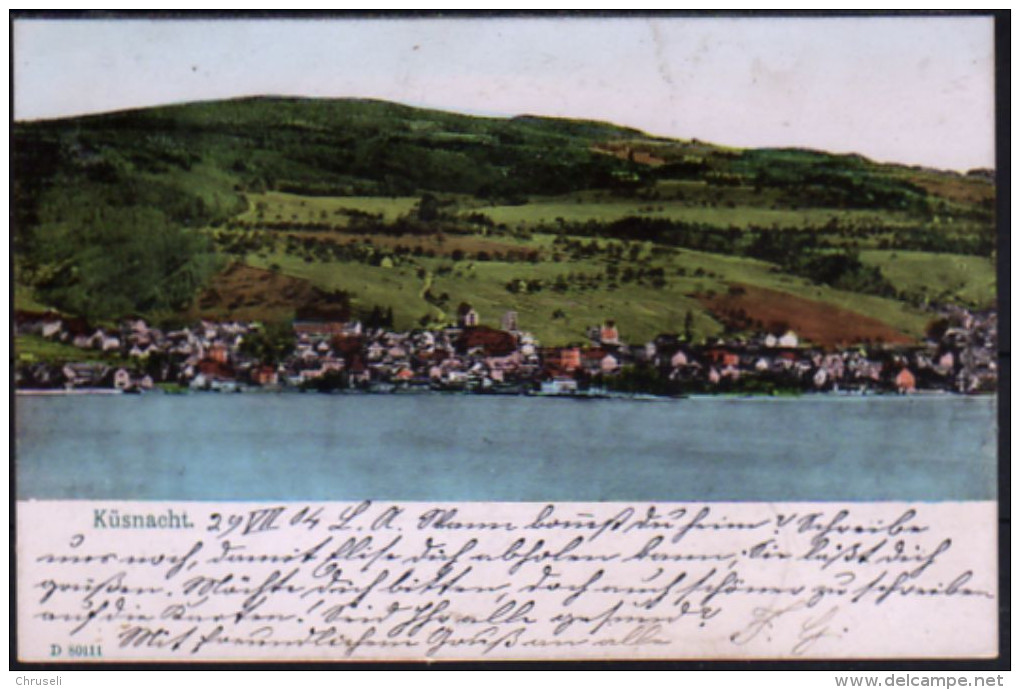 Küsnacht. 29 VII 04 L. A. Wann kommst Du heim? Schreibe
uns noch, damit Elise Dich abholen kann, Sie läßt Dich
grüßen. Möchte Dich bitten, doch auch schöner zu schreiben
auf die Karten! Seid Ihr alle gesund?
Mit freundlichem Gruß an alle F. G.
D 80111
Chruseli
http://www.delcampe.net